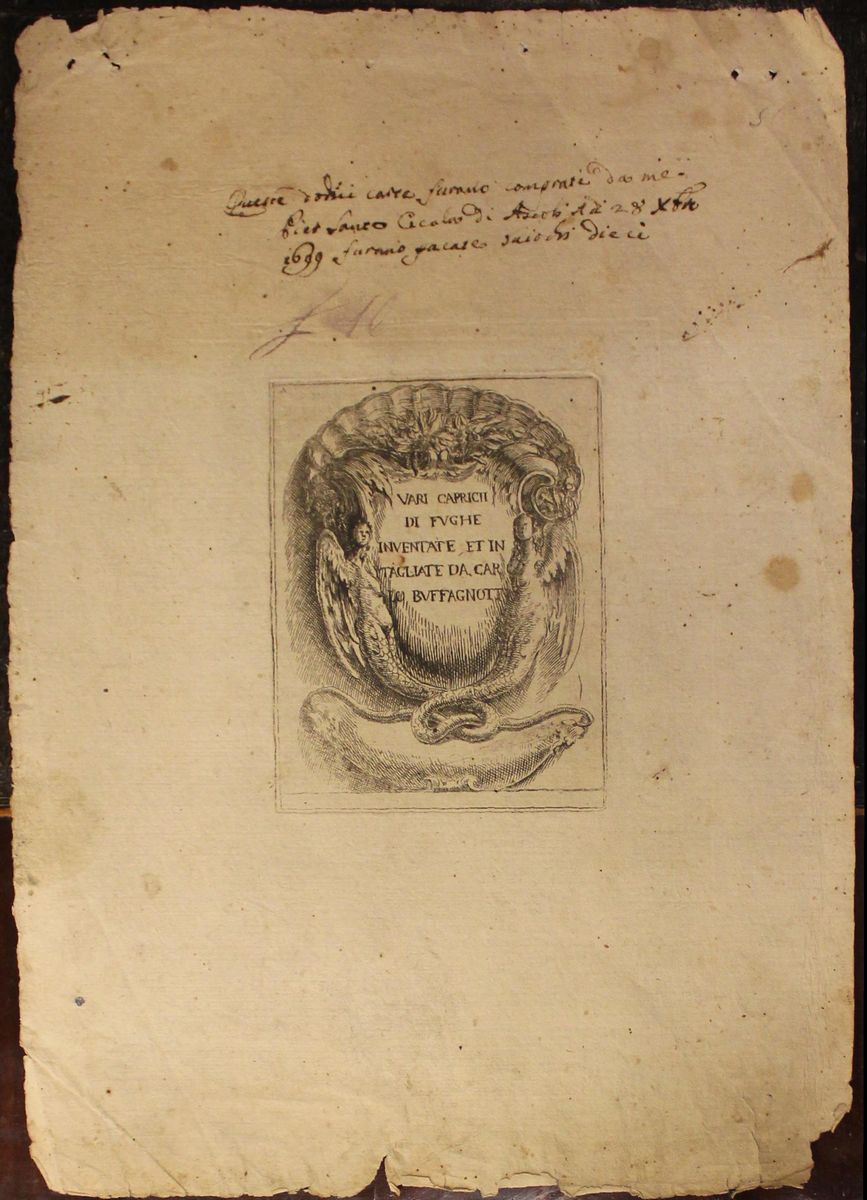 Queste dodici carte furano comprate da me
Piet Santo Cicolar di Ascoli Adi 28 Xbre
1699 furano pacate baiochi dieci
VARI CAPRICII
DI FVGHE
INVENTATE ET IN
TAGLIATE DA CAR
LO BVFFAGNOTT